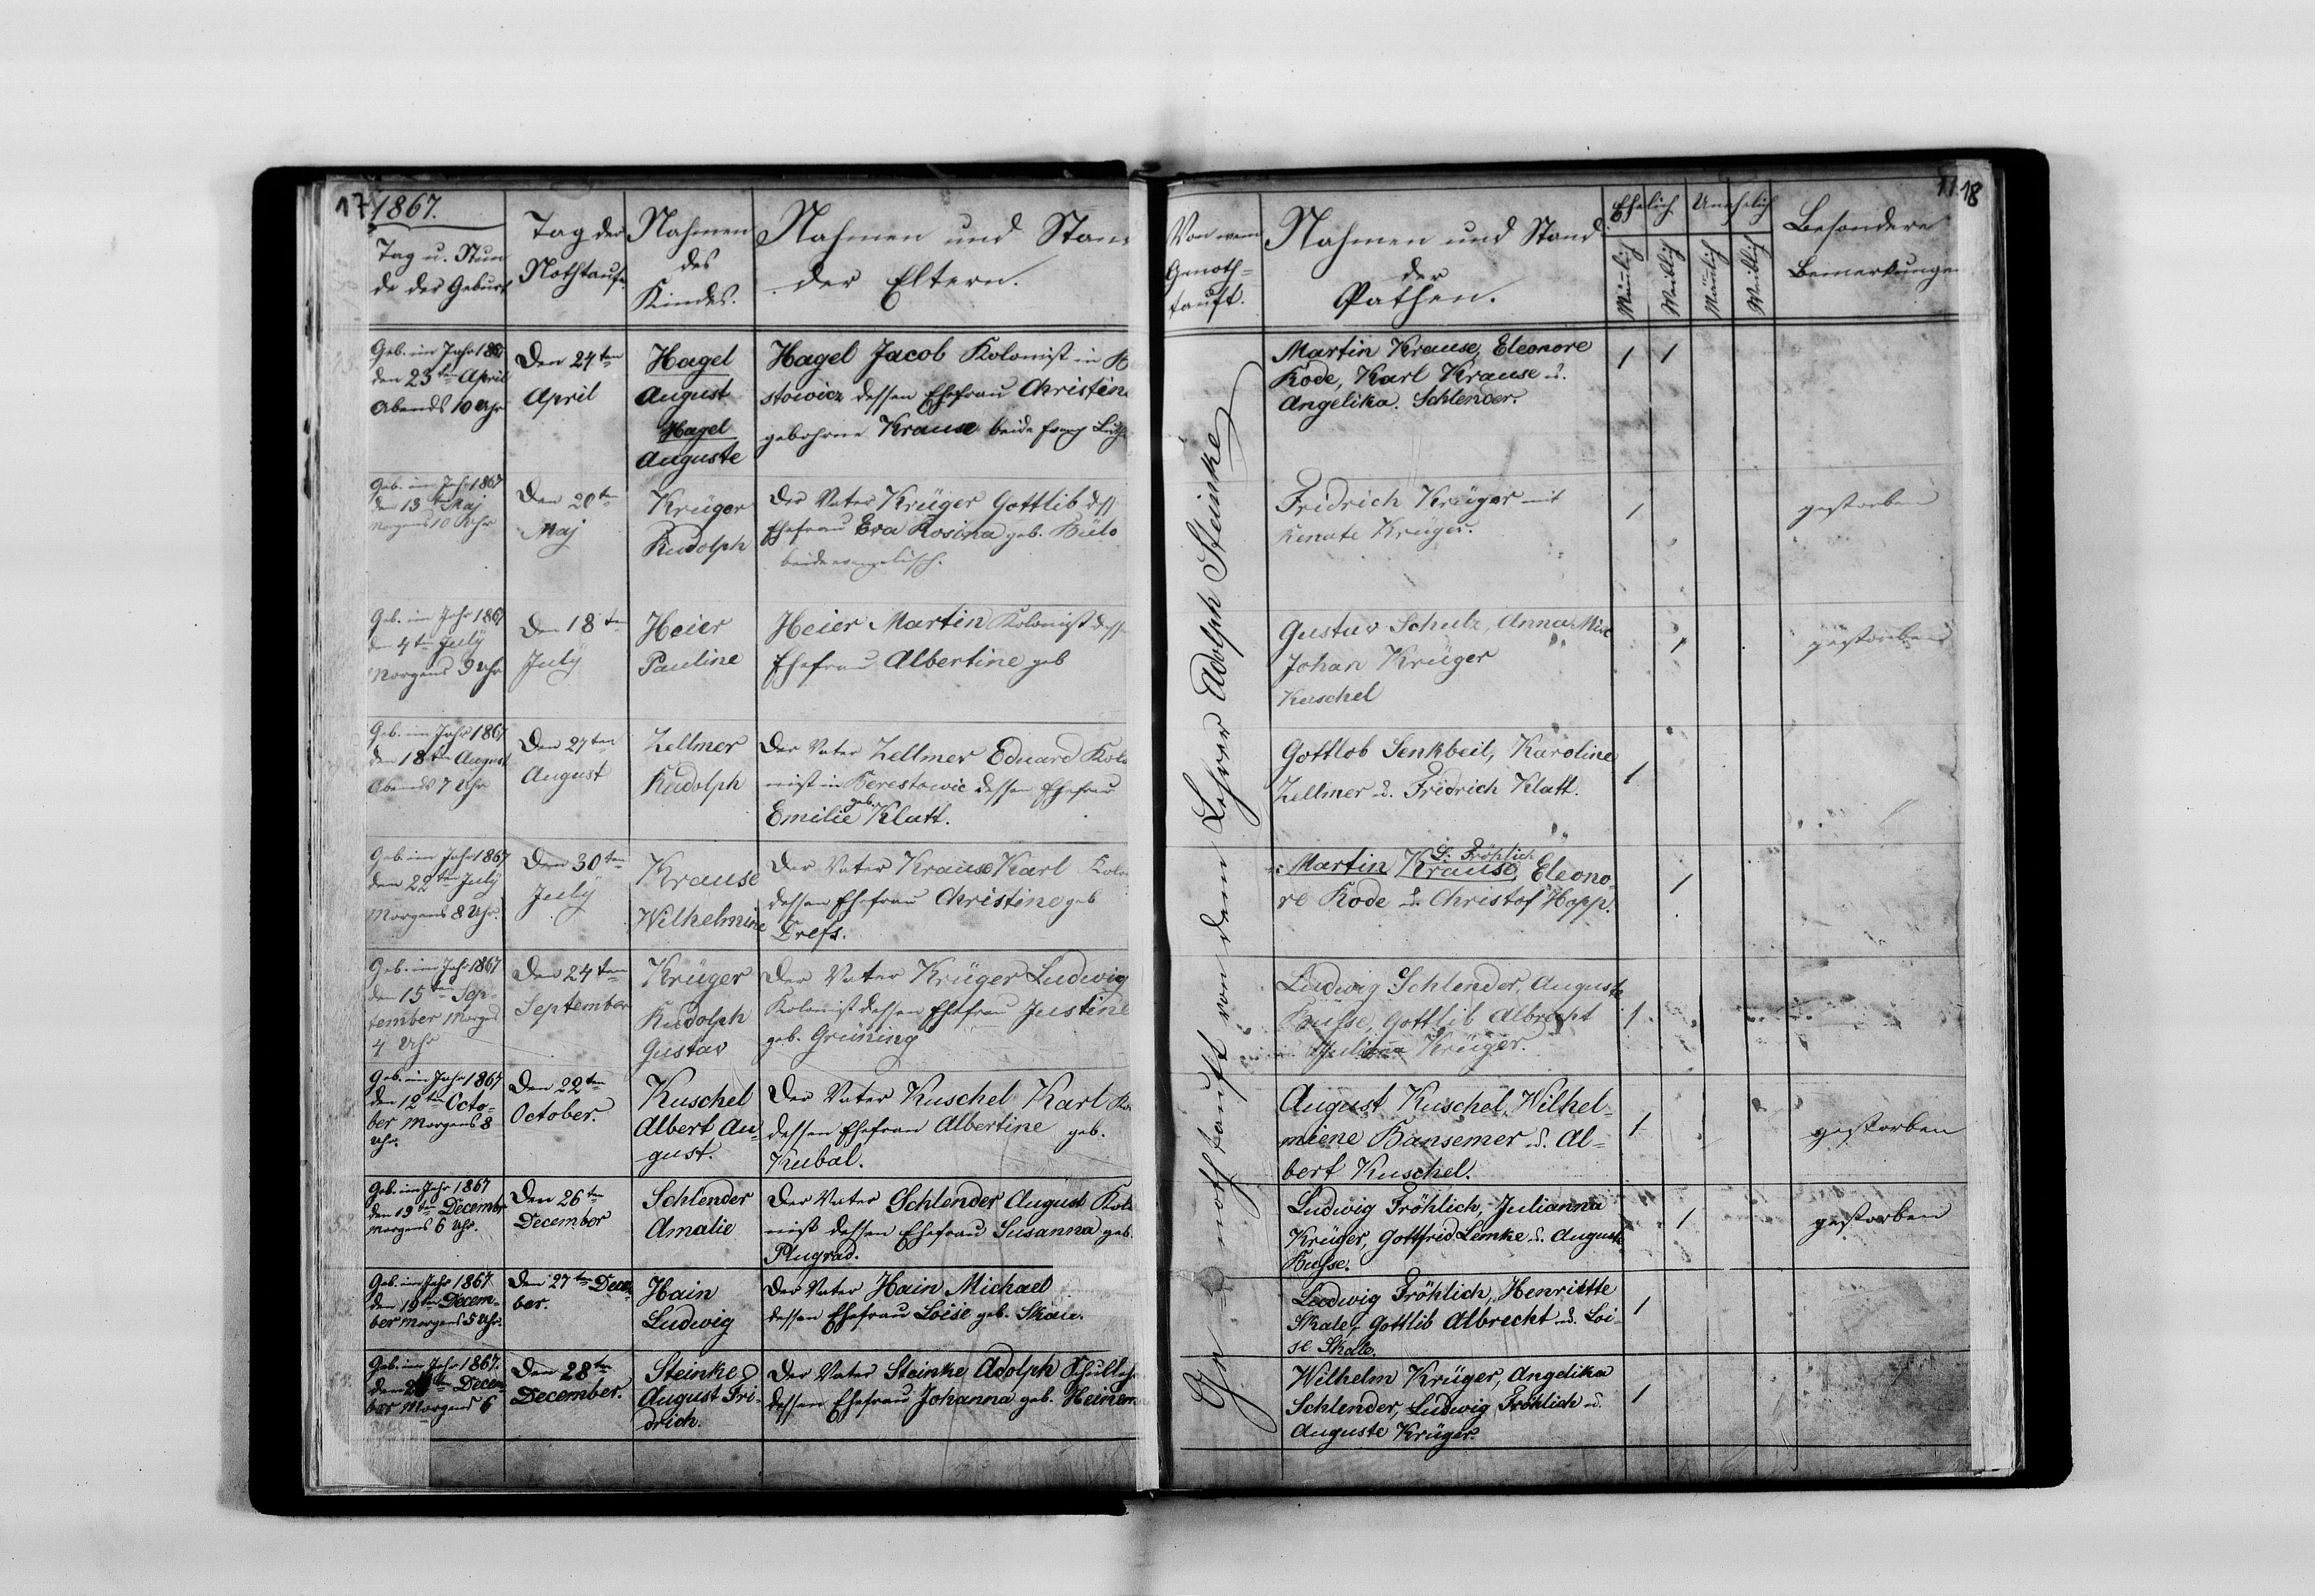 17
1867.
Tag u. Stun
de der Geburt
Tag der
Nothtaufe
Nahmen
des
Kindes.
Nahmen und Stan
der Eltern.
Geb. im Jahr 1867
den 23ten April
Abends 10 Uhr
Den 24ten
April
Hagel
August
Hagel
Auguste
Hagel Jacob Kolonist in
stowicz dessen Ehefrau Christin
gebohrne Krause beide evang Luth
Geb. im Jahr 1867
den 13ten Maj
Morgens 10 Uhr
Den 20ten
Maj
Krüger
Rudolph
Der Vater Krüger Gottlib dess
Ehefrau Eva Rosina geb. Bülo
beide evangelisch.
Geb. im Jahr 1867
den 4ten Julÿ
Morgens 9 Uhr
Den 18ten
Julÿ
Heier
Pauline
Heier Martin Kolonist dess
Ehefrau Albertine geb
Geb. im Jahr 1867
den 18ten August
Abends 7 Uhr
Den 27ten
August
Zellmer
Rudolph
Der Vater Zellmer Eduard Kolo
nist in Berestowic dessen Ehefrau
Emilie geb. Klatt.
Geb. im Jahr 1867
den 22ten Julÿ
Morgens 8 Uhr.
Den 30ten
Julÿ
Krause
Wilhelmine
Der Vater Krause Karl Kolo
dessen Ehefrau Christine geb
Drefs.
Geb. im Jahr 1867
den 15ten Sep-
tember Morgens
4 Uhr
Den 24ten
September
Krüger
Rudolph
Gustav
Der Vater Krüger Ludwig
Kolonist dessen Ehefrau Justine
geb. Grüning
Geb. im Jahr 1867
den 12ten Octo-
ber Morgens 8
Uhr.
Den 22ten
October.
Kuschel
Albert Au-
gust.
Der Vater Kuschel Karl Ko
dessen Ehefrau Albertine geb.
Kubal.
Geb. im Jahr 1867
den 19ten Decembr
Morgens 6 Uhr.
Den 26ten
December
Schlender
Amalie
Der Vater Schlender August Kolo
nist dessen Ehefrau Susanna geb.
Plugrad.
Geb. im Jahr 1867
den 19ten Decem-
ber Morgens 5 Uhr.
Den 27ten Decem
ber.
Hain
Ludwig
Der Vater Hain Michael
dessen Ehefrau Loise geb. Skale.
Geb. im Jahr 1867.
den Decem
ber Morgens 6
Den 28ten
December.
Steinke
August Fri-
drich.
Der Vater Steinke Adolph Schulleh
dessen Ehefrau Johanna geb. Heinem
18
Von wem
Genoth=
tauft.
Nahmen und Stand
der
Pathen.
Ehelich
Unehelich
Mänlich
Weiblich
Mänlich
Weiblich
Besondere
Bemerkungen
Genothtauft von dem Lehrer Adolph Steinke
Martin Krause, Eleonore
Rode, Karl Krause u.
Angelika Schlender.
1 1
Fridrich Krüger mit
Renate Krüger.
1
gestorben
Gustav Schulz, Anna
Johan Krüger
Kuschel
1
gestorben
Gottlob Senkbeil, Karoline
Zellmer u. Fridrich Klatt.
1
L. Fröhlich
Martin Krause, Eleono-
re Rode u. Christof Hopp.
1
Ludwig Schlender, Auguste
Busse, Gottlib Albrecht
Julianna Krüger.
1
August Kuschel, Wilhel-
miene Bansemer u. Al-
bert Kuschel.
1
gestorben
Ludwig Fröhlich, Julianna
Krüger, Gottfrid Lemke u. Auguste
Busse.
1
gestorben
Ludwig Fröhlich, Henriette
Skale, Gottlib Albrecht u. Loi-
se Skale.
1
Wilhelm Krüger, Angelika
Schlender, Ludwig Fröhlich u.
Auguste Krüger.
1